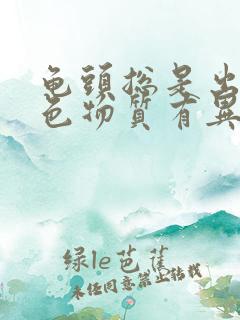 龟頭总是出
色物質有異
绿le芭蕉
未任同意禁止转载